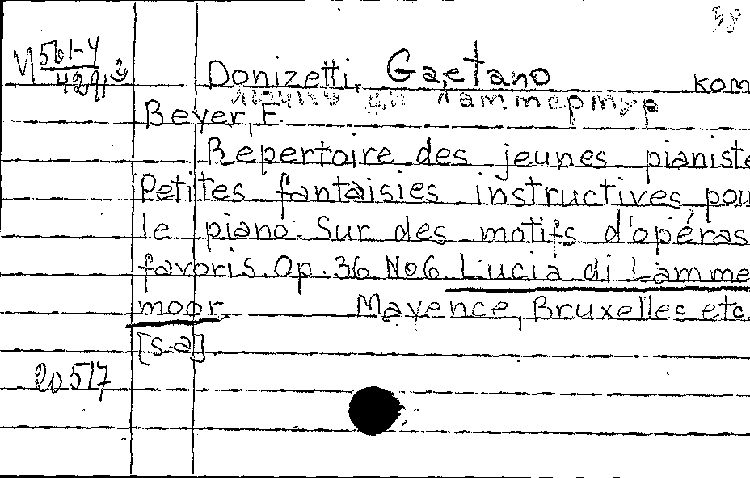 58
M 561-4
4291
Donizetti, Gaetano ком
Лючия ди Ламмермур
Beyer, F.
Repertoire des jeunes pianiste
Petites fantaisies instructives pou
le piano. Sur des motifs d'opéras
favoris. Op. 36 No6 Lucia di Lamme
moor Mayence, Bruxelles etc.
[s.a]
20517